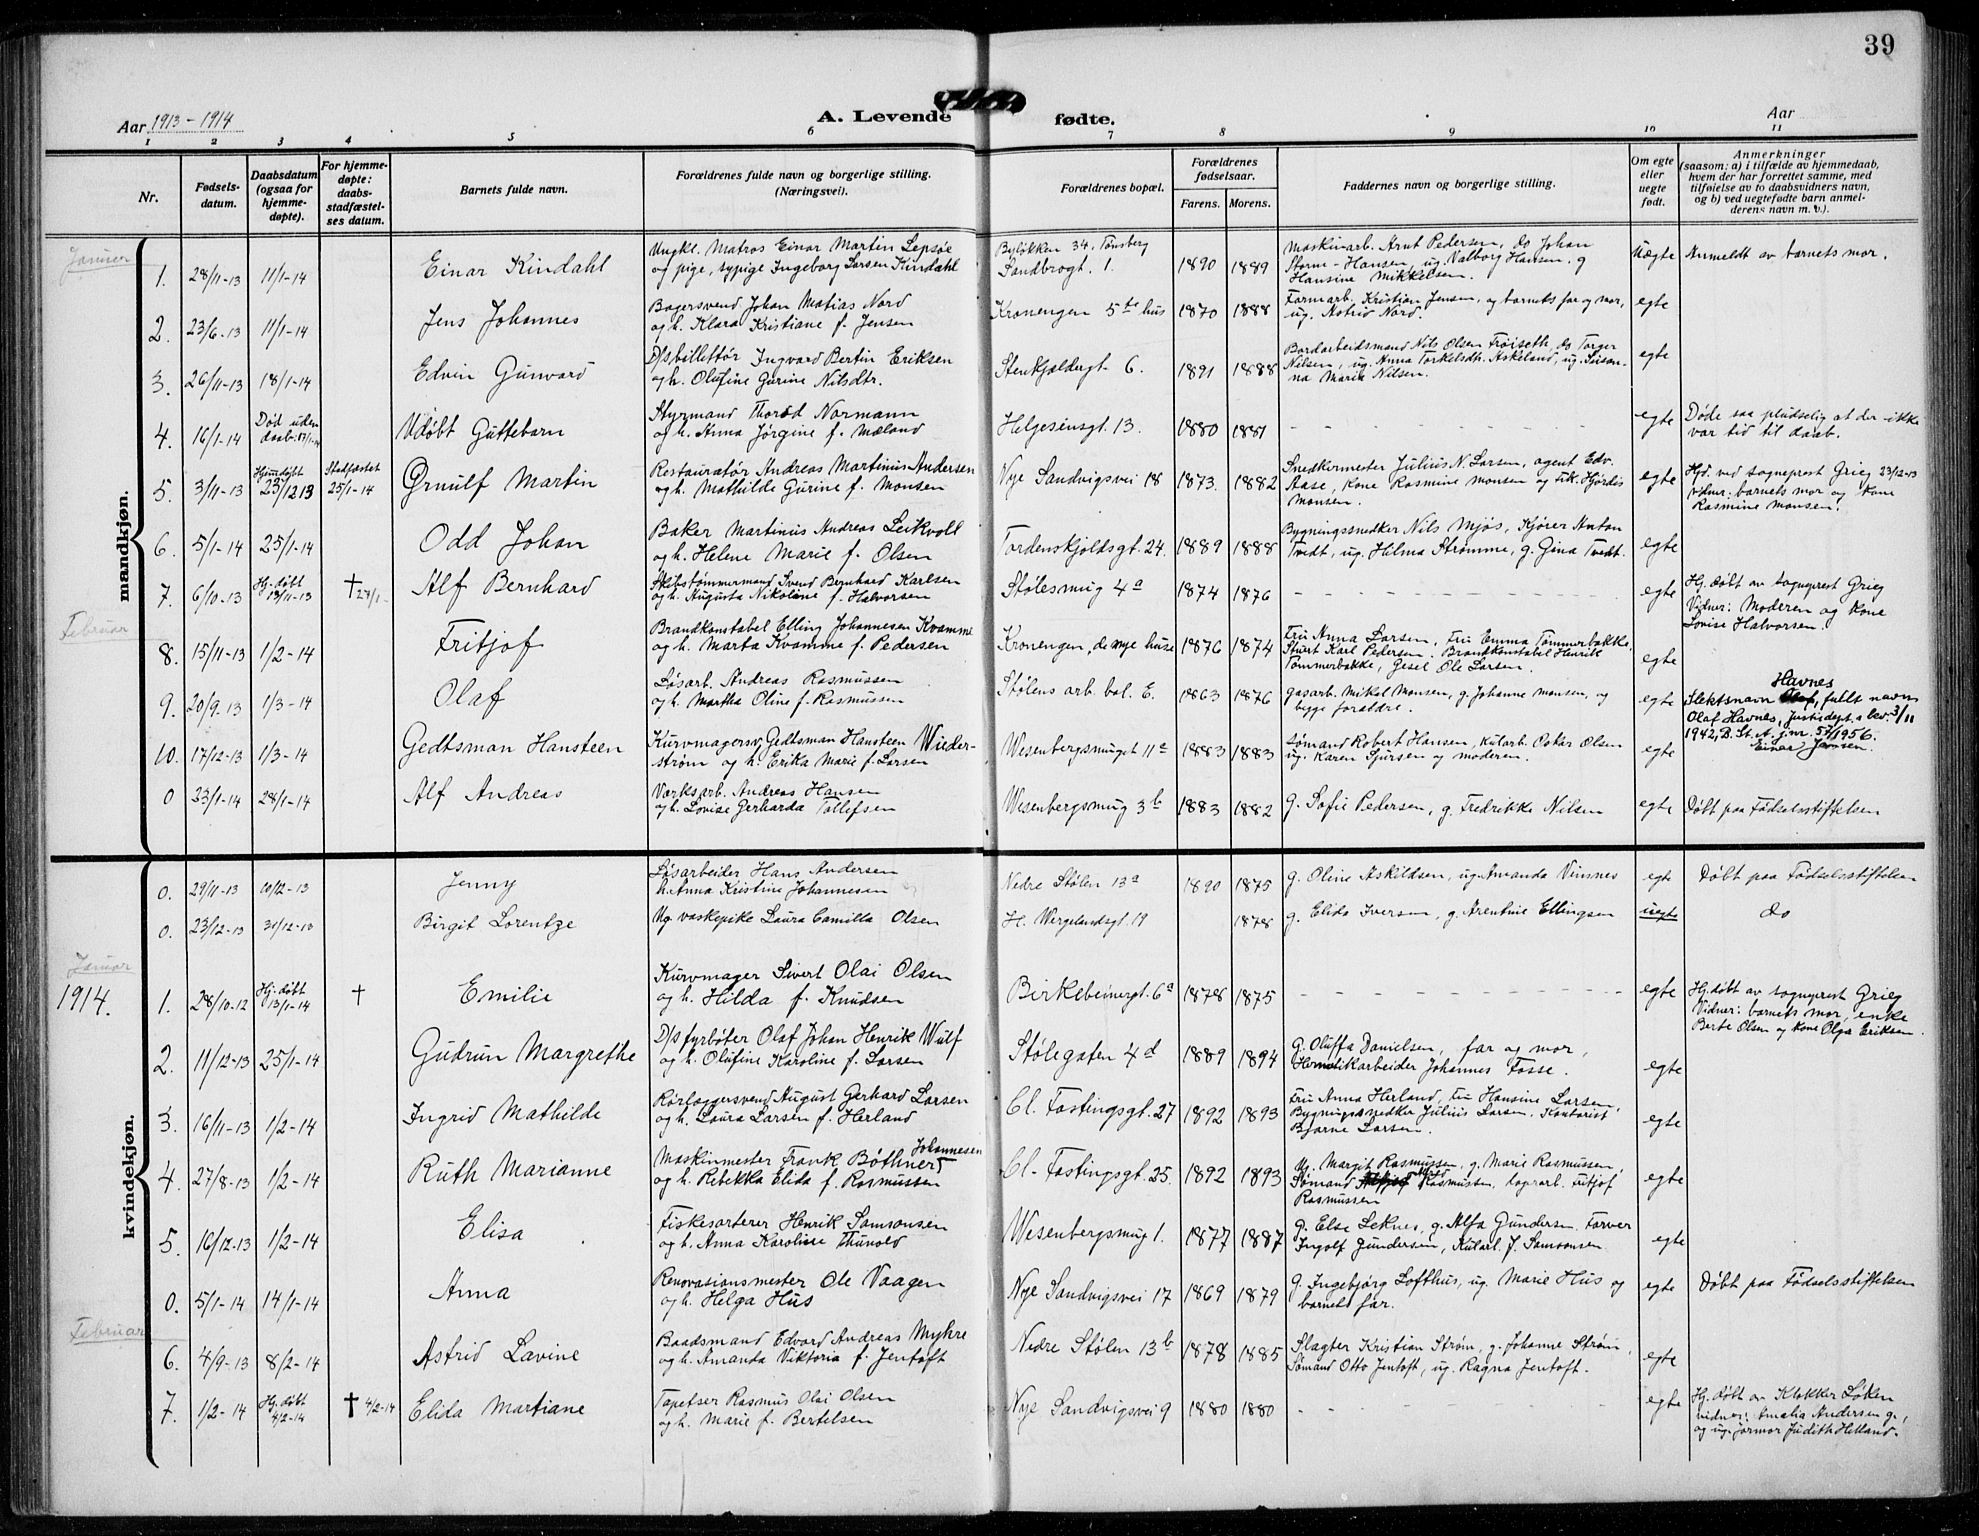 39
Aar 1913-1914
A. Levende fødte.
Aar
1 2 3 4 5 6 7 8 9 10 11
Nr.
Fødsels-
datum.
Daabsdatum
(ogsaa for
hjemme-
døpte).
For hjemme-
døpte:
daabs-
stadfæstel-
ses datum.
Barnets fulde navn.
Forældrenes fulde navn og borgerlige stilling.
(Næringsvei).
Forældrenes bopæl.
Forældrenes
fødselsaar.
Farens. Morens.
Faddernes navn og borgerlige stilling.
Om egte
eller
uegte
født.
Anmerkninger
(saasom: a) i tilfælde av hjemmedaab,
hvem der har forrettet samme, med
tilføielse av to daabsvidners navn,
og b) ved uegtefødte barn anmel-
derens navn m. v.).
mandkjøn.
Januar
1. 28/11-13 11/1-14 Einar Kindahl
Ungkl. Matros Einar Martin Lepsøe
og pige, sypige Ingeborg Larsen Kindahl
Byløkken 34, Tønsberg
Sandbrogt. 1.
1890 1889
Maskinarb. Arnt Pedersen, do Johan
Storm-Hansen, ug. Valborg Hansen, g
Hansine Mikkelsen.
Uegte Anmeldt av barnets mor.
2. 23/6-13 11/1-14 Jens Johannes
Bagersvend Johan Matias Nord
og h. Klara Kristiane f. Jensen
Kronengen 5te hus 1870 1888
Formarb. Kristian Jensen, og barnets far og mor,
ug. Astrid Nord.
egte
3. 26/11-13 18/1-14 Edvin Gunvard
D/sbillettør Ingvard Bertin Eriksen
og h. Olufine Gurine Nilsdtr.
Stenkjældergt 6. 1891 1888
Bordarbeidsmand Nils Olsen Frøiseth, do Torger
Nilsen, ug. Anna Torkelsdtr. Askeland, ug. Susan-
na Marie Nilsen.
egte
4. 16/1-14 Død uden
daab: 17/1-14
Udøbt Guttebarn
Styrmand Thorod Normann
og h. Anna Jørgine f. Mæland
Helgesensgt. 13. 1880 1881
egte Døde saa pludselig at der ikke
var tid til daab.
5. 3/11-13 Hjemdøbt
23/12 13
Stadfæstet
25/1-14
Ørnulf Martin
Restauratør Andreas Martinus Andersen
og h. Mathilde Gurine f. Monsen
Nye Sandvigsvei 18 1873. 1882
Snedkermester Julius N. Larsen, agent Edv.
Aase, kone Rasmine Monsen og frk. Hjørdis
Monsen.
egte Hjd. ved sogneprest Grieg 23/12-13
vidner: barnets mor og kone
Rasmine Monsen.
6. 5/1-14 25/1-14 Odd Johan
Baker Martinus Andreas Leikvoll
og h. Helene Marie f. Olsen
Tordenskjoldsgt. 24. 1889 1888
Bygningssnedker Nils Mjøs, Kjører Anton
Tvedt, ug. Hilma Strømme, g. Gina Tvedt.
egte
7. 6/10-13 Hj. døbt
13/11-13
† 27/1- Alf Bernhard
Skibstømmermand Svend Bernhard Karlsen
og h. Augusta Nikoline f. Halvorsen
Stølesmug 4a 1874 1876
egte Hj. døbt av sogneprest Grieg
Vidner: Moderen og kone
Lovise Halvorsen.
Februar
8. 15/11-13 1/2-14 Fritjof
Brandkonstabel Elling Johannesen Kvamme
og h. Marta Kvamme f. Pedersen
Kronengen, de nye huse 1876 1874
Fru Anna Larsen, Fru Emma Tømmerbakke,
Stuert Karl Pedersen, Brandkonstabel Henrik
Tømmerbakke, Gesel Ole Larsen.
egte
9. 20/9-13 1/3-14 Olaf
Løsarb. Andreas Rasmussen
og h. Martha Oline f. Rasmussen
Stølens arb. bol. E. 1863 1876
Gasarb. Mikal Monsen, g. Johanne Monsen, og
begge forældre.
egte
Havnes
Slektsnavn Olaf, fullt navn
Olaf Havnes, Justisdept.s bev. 3/11
1942, B. St. A. j.nr. 54/1956.
Einar Jansen.
10. 17/12-13 1/3-14 Gedtsman Hansteen
Kurvmagersv. Gedtsman Hansteen Wieder-
strøm og h. Erika Marie f. Larsen
Wesenbergsmuget 11a 1883 1883
Sømand Robert Hansen, kularb. Oskar Olsen
ug. Karen Sjursen og moderen.
egte
0 23/1-14 28/1-14 Alf Andreas
Værksarb. Andreas Hansen
og h. Lovise Gerharda Tollefsen
Wesenbergsmug 3b 1883 1882
g. Sofie Pedersen, g. Fredrikke Nilsen
egte Døbt paa Fødselsstiftelsen
kvindekjøn.
0. 29/11-13 10/12-13 Jenny
Løsarbeider Hans Andersen
h. Anna Kristine Johannesen
Nedre Stølen 13a 1890 1875
g. Oline Askildsen, ug. Amanda Vinsnes
egte Døbt paa Fødselsstiftelsen
0. 23/12-13 31/12-13 Birgit Lorentze
Ug vaskepike Laura Camilla Olsen
H. Wergelandsgt. 19 1878
g. Elida Iversen, g. Arentine Ellingsen
uegte do
Januar
1914.
1. 28/10-12 Hj. døbt
13/1-14
† Emilie
Kurvmager Sivert Olai Olsen
og h. Hilda f. Knudsen
Birkebeinergt. 6a 1878 1875
egte Hj. døbt av sogneprest Grieg
Vidner: barnets mor, enke
Berte Olsen og kone Olga Eriksen.
2. 11/12-13 25/1-14 Gudrun Margrethe
D/s fyrbøter Olaf Johan Henrik Wulf
og h. Olufine Karoline f. Larsen
Stølegaten 4d 1889 1894
G. Oluffa Danielsen, far og mor,
Hermetikarbeider Johannes Fosse.
egte
3. 16/11-13 1/2-14 Ingrid Mathilde
Rørlæggersvend August Gerhard Larsen
og h. Laura Larsen f. Herland
Cl. Fastingsgt. 27 1892 1893
Fru Anna Herland, fru Hansine Larsen,
Bygningssnedker Julius Larsen, Kontorist
Bjarne Larsen.
egte
4. 27/8-13 1/2-14 Ruth Marianne
Maskinmester Frank Bøthner Johannesen
og h. Rebekka Elida f. Rasmussen
Cl. Fastingsgt. 25. 1892 1893
U. Margit Rasmussen, g. Marie Rasmussen,
Sømand Rasmussen, lagerarb. Fritjof
Rasmussen
egte
5. 16/12-13 1/2-14 Elisa
Fiskesorterer Henrik Samsonsen
og h. Anna Karoline Thunold
Wesenbergsmug 1. 1877 1887
g. Else Leknes, g. Alfa Gundersen, Farver
Ingolf Gundersen, Kularb. J. Samsonsen.
egte
0. 5/1-14 14/1-14 Anna
Renovasionsmester Ole Vaagen
og h. Helga Hus
Nye Sandvigsvei 17 1869 1879
g. Ingebjørg Lofthus, ug. Marie Hus og
barnets far.
egte Døbt paa Fødselsstiftelsen
Februar
6. 4/9-13 8/2-14 Astrid Lavine
Baadsmand Edvard Andreas Myhre
og h. Amanda Viktoria f. Jentoft
Nedre Stølen 13b 1878 1885
Slagter Kristian Strøm, g. Johanne Strøm,
Sømand Otto Jentoft, ug. Ragna Jentoft.
egte
7. 1/2-14 Hj. døbt
4/2-14
† 4/2-14 Elida Martiane
Tapetser Rasmus Olai Olsen
og h. Marie f. Bertelsen
Nye Sandvigsvei 9 1880 1880
egte Hj. døbt av Klokker Løken
vidner: Amalia Andersen g.,
og ug. jormor Judith Helland.